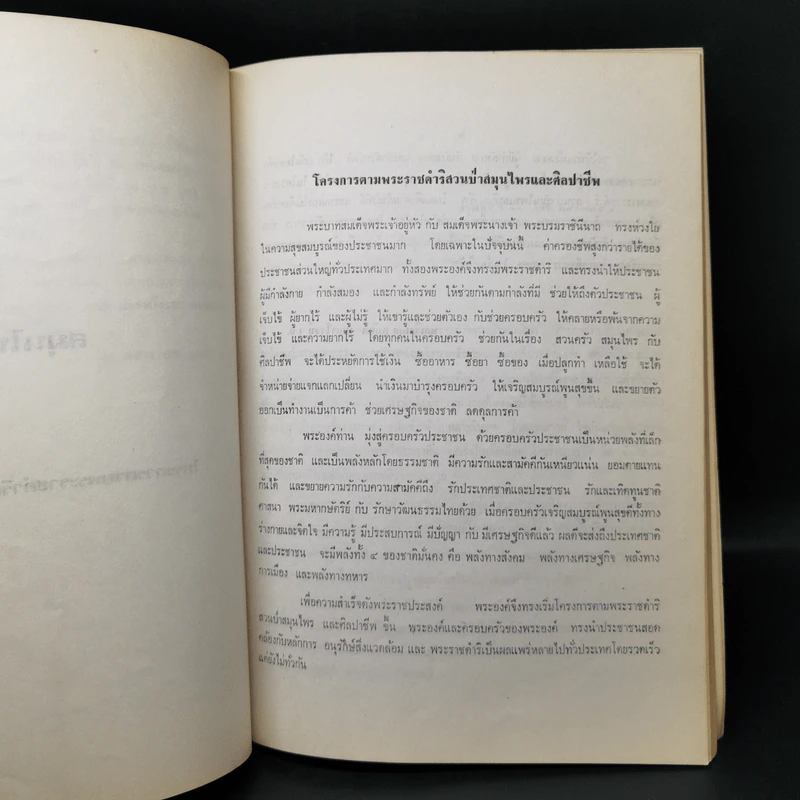 โครงการตามพระราชดำริสวนป่าสมุนไพรและศิลปาชีพ
พระบาทสมเด็จพระเจ้าอยู่หัว กับ สมเด็จพระนางเจ้า พระบรมราชินีนาถ ทรงห่วงใย
ในความสุขสมบูรณ์ของประชาชนมาก โดยเฉพาะในปัจจุบันนี้ ค่าครองชีพสูงกว่ารายได้ของ
ประชาชนส่วนใหญ่ทั่วประเทศมาก ทั้งสองพระองค์จึงทรงมีพระราชดำริ และทรงนำให้ประชาชน
ผู้มีกำลังกาย กำลังสมอง และกำลังทรัพย์ ให้ช่วยกันตามกำลังที่มี ช่วยให้ถึงตัวประชาชน ผู้
เจ็บไข้ ผู้ยากไร้ และผู้ไม่รู้ ให้เขารู้และช่วยตัวเอง กับช่วยครอบครัว ให้คลายหรือพ้นจากความ
เจ็บไข้ และความยากไร้ โดยทุกคนในครอบครัว ช่วยกันในเรื่อง สวนครัว สมุนไพร กับ
ศิลปาชีพ จะได้ประหยัดการใช้เงิน ซื้ออาหาร ซื้อยา ซื้อของ เมื่อปลูกทำ เหลือใช้ จะได้
จำหน่ายจ่ายแจกแลกเปลี่ยน นำเงินมาบำรุงครอบครัว ให้เจริญสมบูรณ์พูนสุขขึ้น และขยายตัว
ออกเป็นทำงานเป็นการค้า ช่วยเศรษฐกิจของชาติ ลดดุลการค้า
พระองค์ท่าน มุ่งสู่ครอบครัวประชาชน ด้วยครอบครัวประชาชนเป็นหน่วยพลังที่เล็ก
ที่สุดของชาติ และเป็นพลังหลักโดยธรรมชาติ มีความรักและสามัคคีกันเหนียวแน่น ยอมตายแทน
กันได้ และขยายความรักกับความสามัคคีถึง รักประเทศชาติและประชาชน รักและเทิดทูนชาติ
ศาสนา พระมหากษัตริย์ กับ รักษาวัฒนธรรมไทยด้วย เมื่อครอบครัวเจริญสมบูรณ์พูนสุขดีทั้งทาง
ร่างกายและจิตใจ มีความรู้ มีประสบการณ์ มีปัญญา กับ มีเศรษฐกิจดีแล้ว ผลดีจะส่งถึงประเทศชาติ
และประชาชน จะมีพลังทั้ง ๔ ของชาติมั่นคง คือ พลังทางสังคม พลังทางเศรษฐกิจ พลังทาง
การเมือง และพลังทางทหาร
เพื่อความสำเร็จดังพระราชประสงค์ พระองค์จึงทรงเริ่มโครงการตามพระราชดำริ
สวนป่าสมุนไพร และศิลปาชีพ ขึ้น พระองค์และครอบครัวของพระองค์ ทรงนำประชาชนสอด
คล้องกับหลักการ อนุรักษ์สิ่งแวดล้อม และ พระราชดำริเป็นผลแพร่หลายไปทั่วประเทศโดยรวดเร็ว
แต่ยังไม่ทั่วกัน